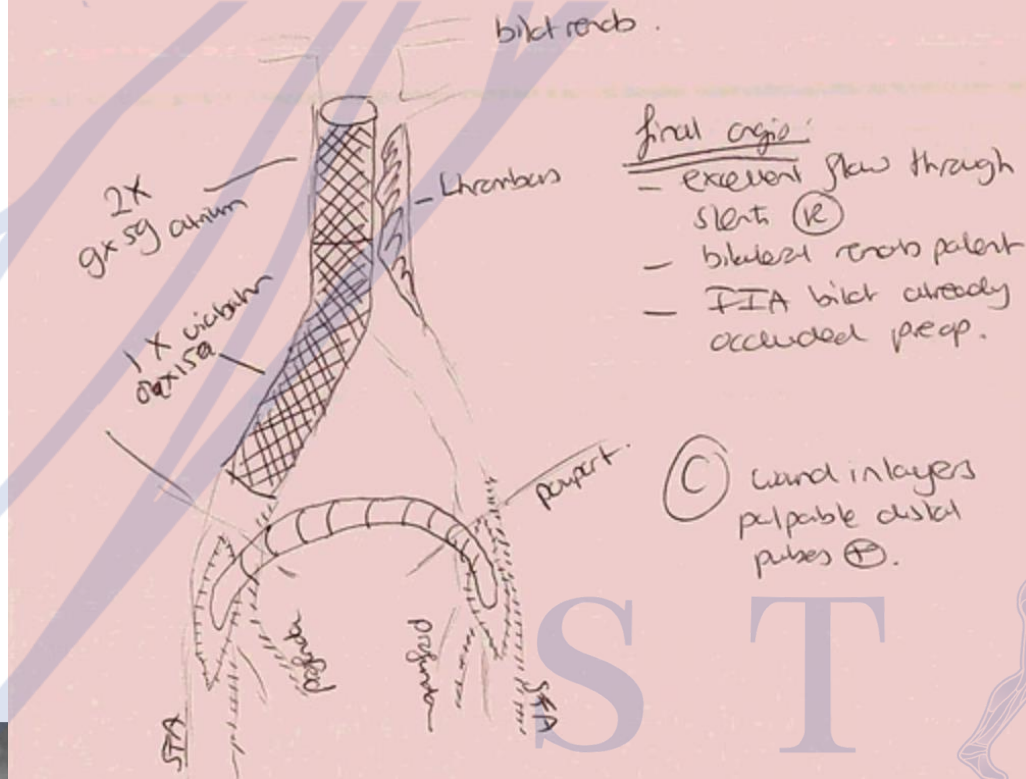 bilat renals.
2x
9x59 atrium
thrombus
final angio:
- excellent flow through
stents (R)
- bilateral renals patent
- IIA bilat already
occluded preop.
1x viabahn
poupart.
(C) wound in layers
palpable distal
pulses ⊕.
profunda
profunda
SFA
SFA
S T